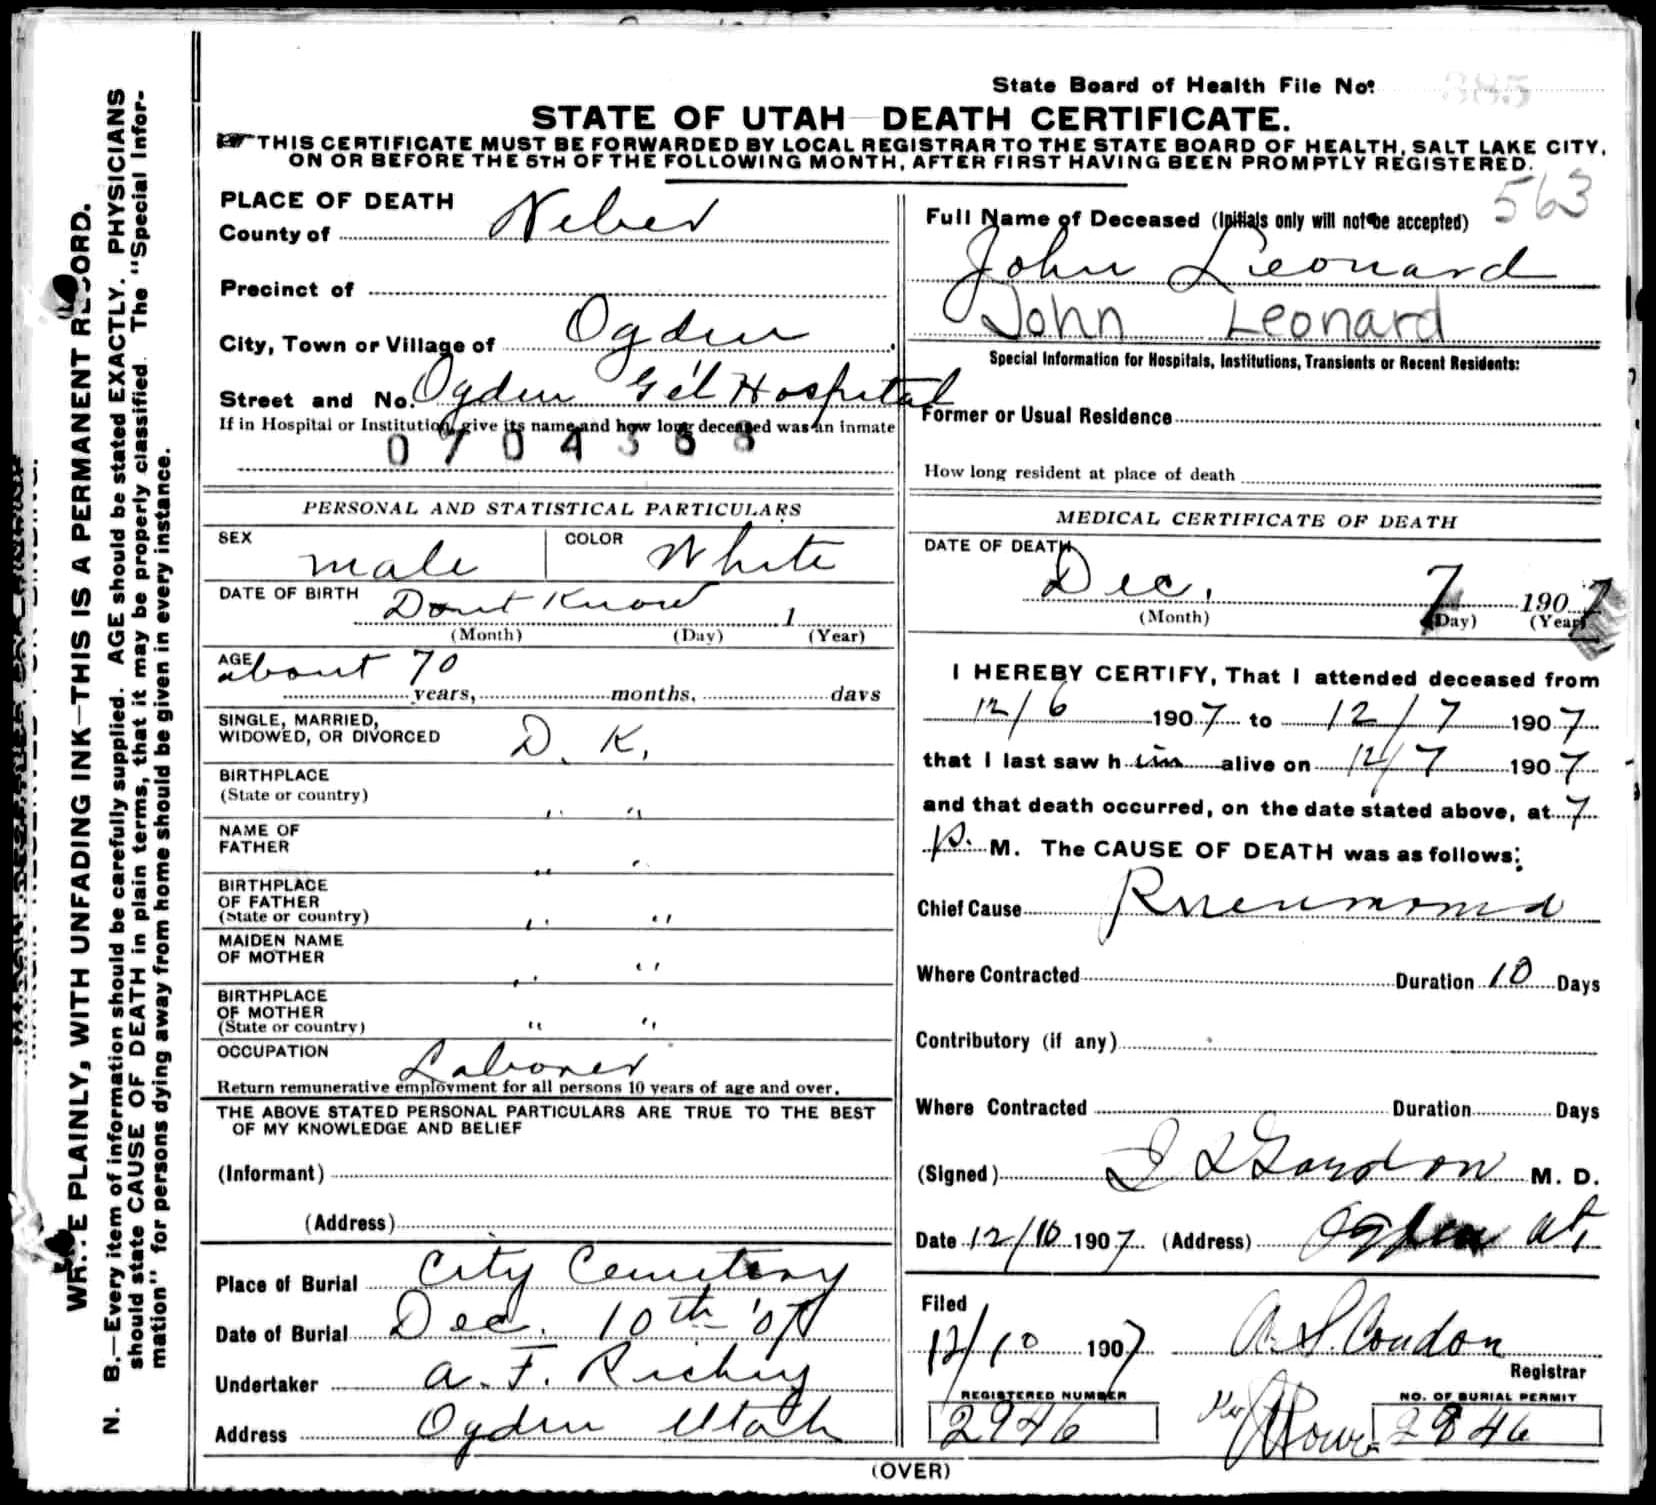 State Board of Health File No. 385
STATE OF UTAH—DEATH CERTIFICATE.
THIS CERTIFICATE MUST BE FORWARDED BY LOCAL REGISTRAR TO THE STATE BOARD OF HEALTH, SALT LAKE CITY,
ON OR BEFORE THE 5TH OF THE FOLLOWING MONTH, AFTER FIRST HAVING BEEN PROMPTLY REGISTERED.
563
PLACE OF DEATH
County of Weber
Precinct of
City, Town or Village of Ogden
Street and No. Ogden Ge'l Hospital
If in Hospital or Institution, give its name and how long deceased was an inmate
0704368
PERSONAL AND STATISTICAL PARTICULARS
SEX male COLOR White
DATE OF BIRTH Dont Know 1
(Month) (Day) (Year)
AGE about 70
years, months, days
SINGLE, MARRIED,
WIDOWED, OR DIVORCED D. K.
BIRTHPLACE
(State or country) " "
NAME OF
FATHER " "
BIRTHPLACE
OF FATHER
(State or country) " "
MAIDEN NAME
OF MOTHER " "
BIRTHPLACE
OF MOTHER
(State or country) " "
OCCUPATION Laborer
Return remunerative employment for all persons 10 years of age and over.
THE ABOVE STATED PERSONAL PARTICULARS ARE TRUE TO THE BEST
OF MY KNOWLEDGE AND BELIEF
(Informant)
(Address)
Place of Burial City Cemetery
Date of Burial Dec. 10th '07
Undertaker A. F. Richey
Address Ogden Utah
Full Name of Deceased (Initials only will not be accepted)
John Leonard
John Leonard
Special Information for Hospitals, Institutions, Transients or Recent Residents:
Former or Usual Residence
How long resident at place of death
MEDICAL CERTIFICATE OF DEATH
DATE OF DEATH
Dec. 7 1907
(Month) (Day) (Year)
I HEREBY CERTIFY, That I attended deceased from
12/6 1907 to 12/7 1907
that I last saw h im alive on 12/7 1907
and that death occurred, on the date stated above, at 7
P. M. The CAUSE OF DEATH was as follows:
Chief Cause Pneumonia
Where Contracted Duration 10 Days
Contributory (if any)
Where Contracted Duration Days
(Signed) Gordon M. D.
Date 12/10 1907 (Address) Ogden Ut,
Filed
12/10 1907 A. S. Condon
Registrar
REGISTERED NUMBER
2946
Per
NO. OF BURIAL PERMIT
2846
(OVER)
WRITE PLAINLY, WITH UNFADING INK—THIS IS A PERMANENT RECORD.
N. B.—Every item of information should be carefully supplied. AGE should be stated EXACTLY. PHYSICIANS
should state CAUSE OF DEATH in plain terms, that it may be properly classified. The "Special Infor-
mation" for persons dying away from home should be given in every instance.